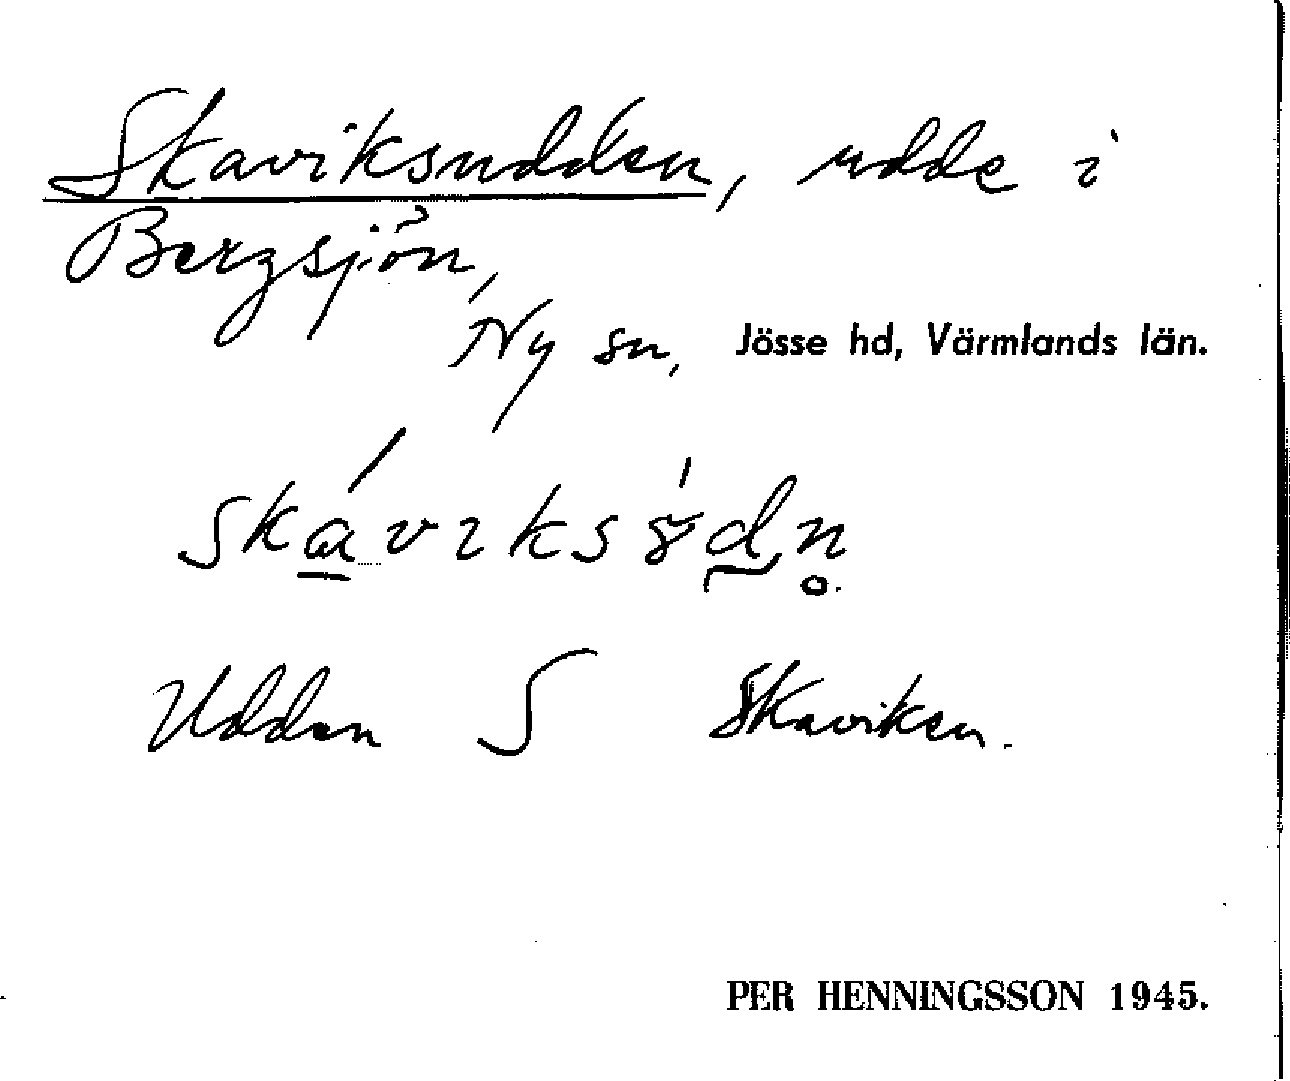 Skaviksudden, udde i
Bergsjön,
Ny sn, Jösse hd, Värmlands län.
Udden S Skaviken.
PER HENNINGSSON 1945.